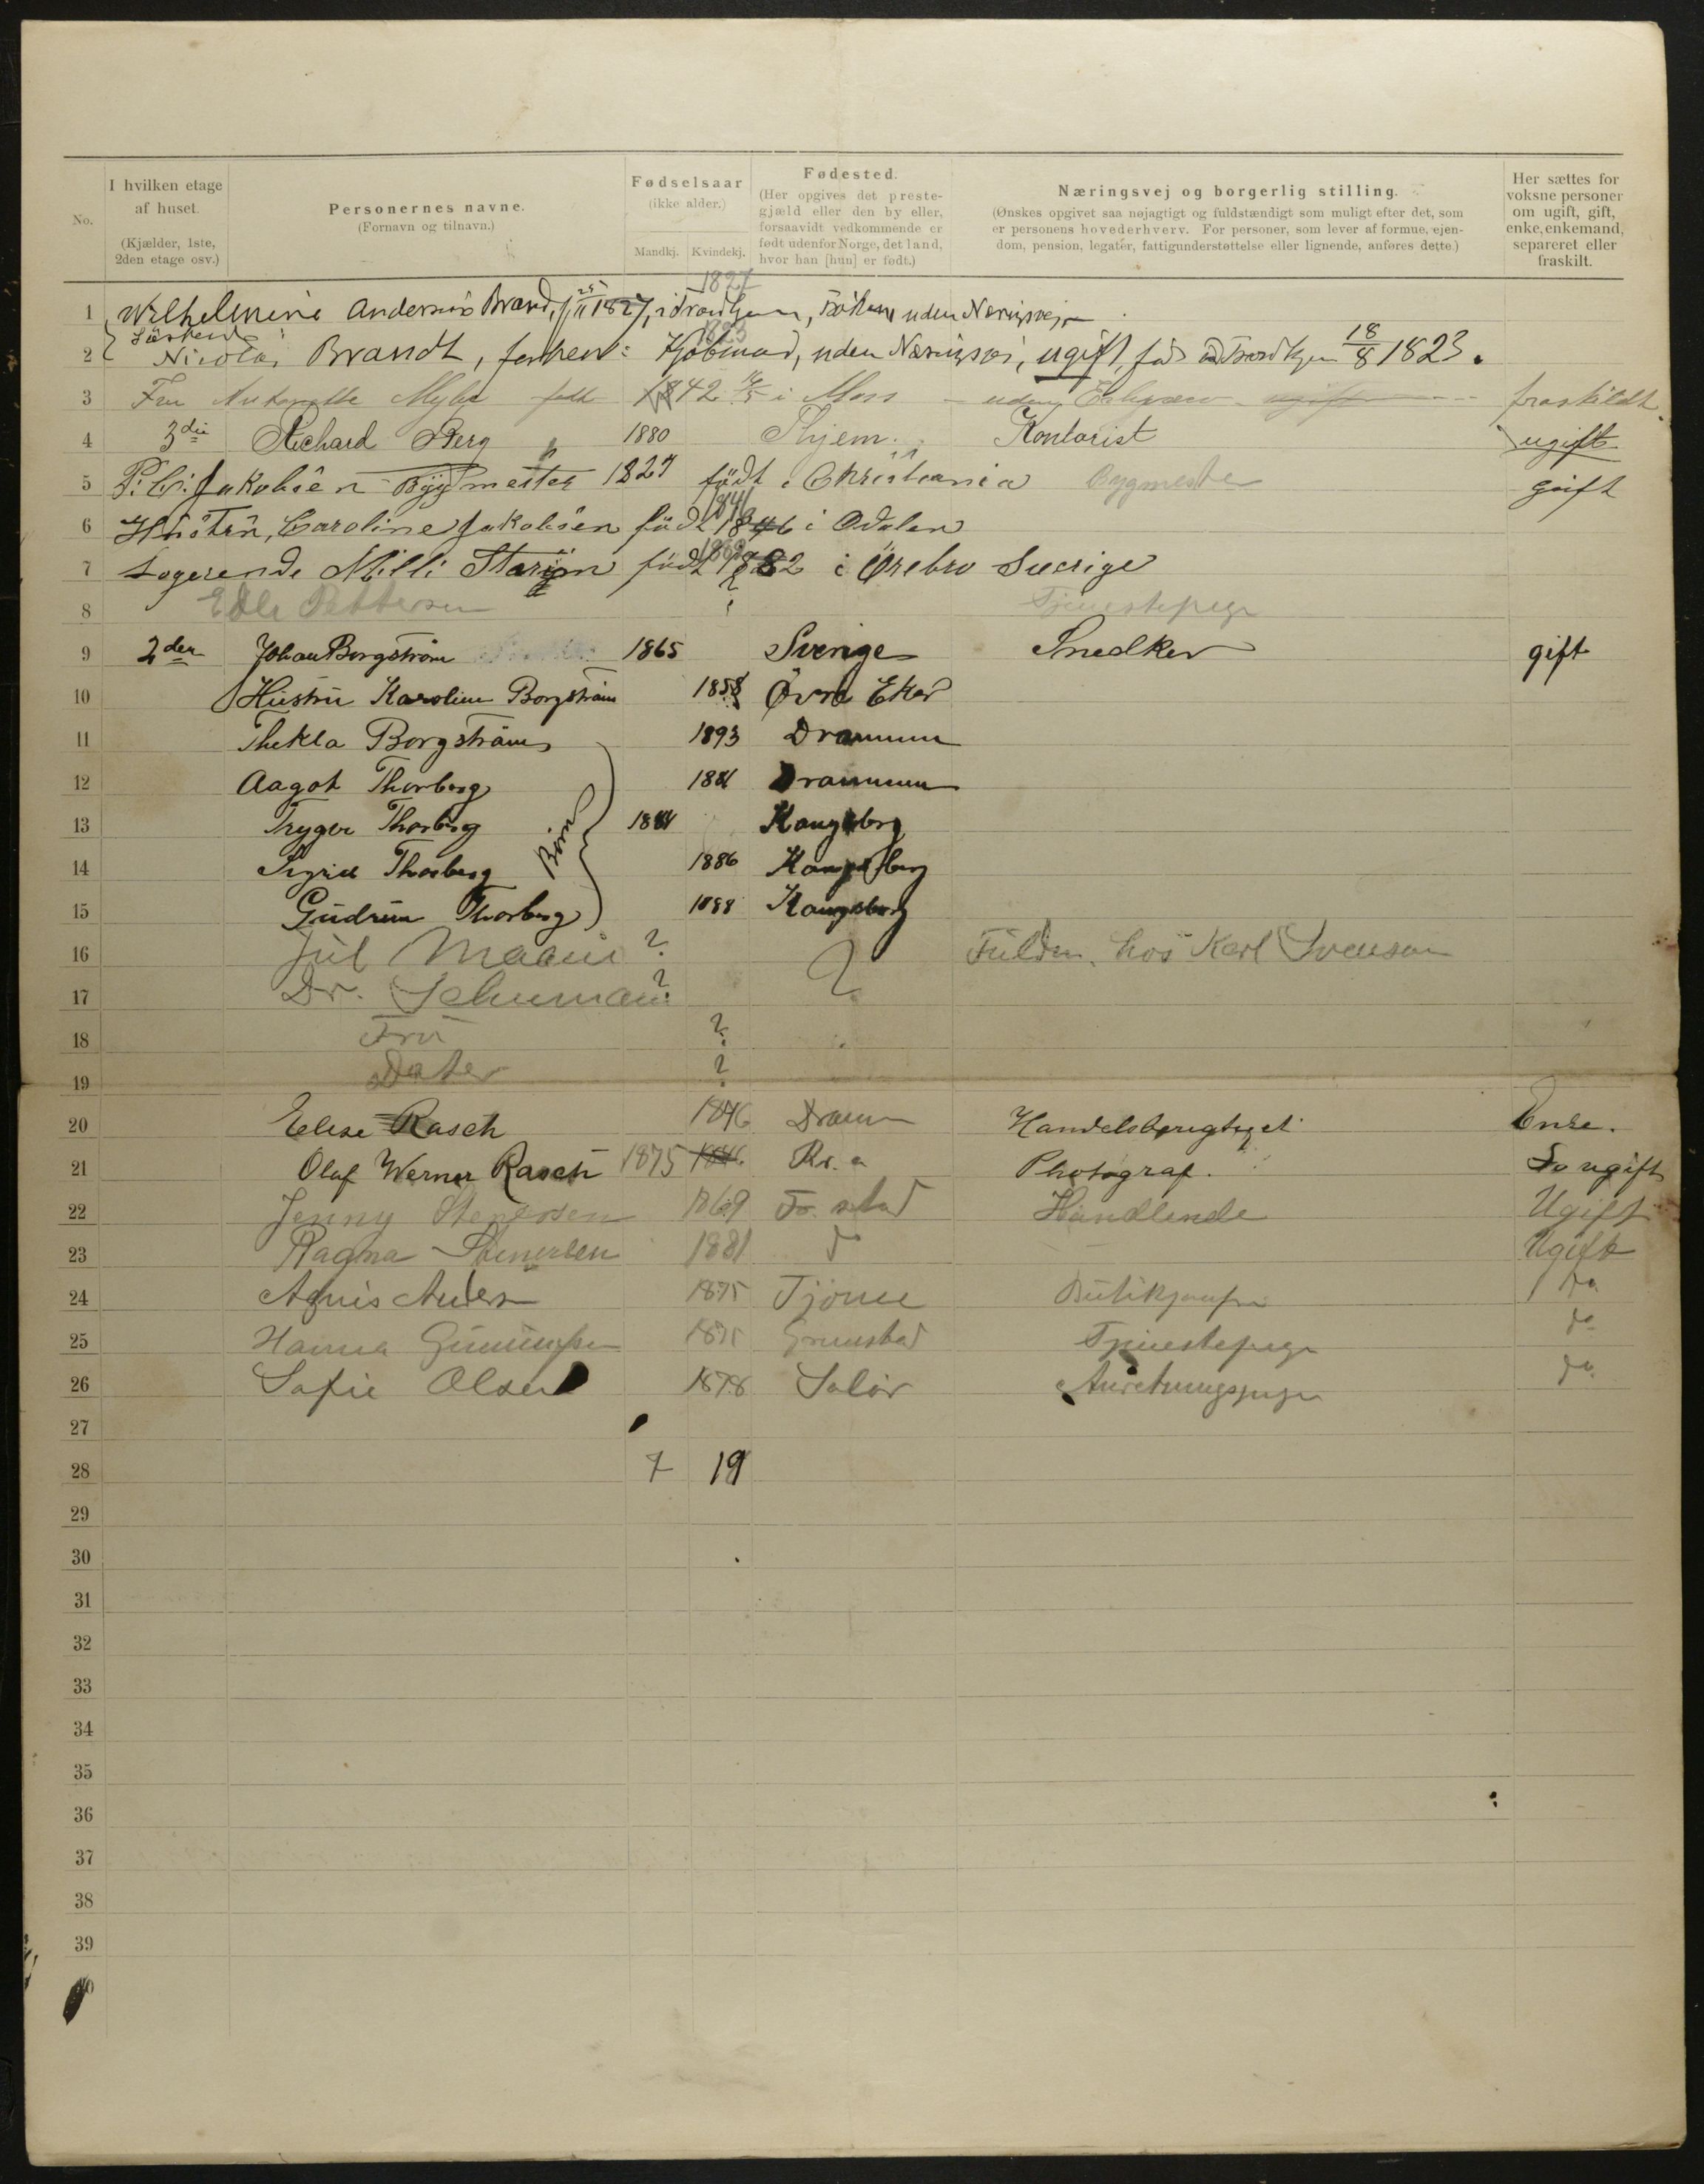 No.
I hvilken etage af huset. (Kjælder, 1ste, 2den etage osv.)
Personernes navne. (Fornavn og tilnavn.)
Fødselsaar (ikke alder.) Mandkj. Kvindekj.
Fødested. (Her opgives det prestegjæld eller den by eller, forsaavidt vedkommende er født udenfor Norge, det land, hvor han [hun] er født.)
Næringsvej og borgerlig stilling. (Ønskes opgivet saa nøjagtigt og fuldstændigt som muligt efter det, som er personens hovederhverv. For personer, som lever af formue, ejendom, pension, legater, fattigunderstøttelse eller lignende, anføres dette.)
Her sættes for voksne personer om ugift, gift, enke, enkemand, separeret eller fraskilt.
1827
1 Wilhelmine Brand, 1827, i uden Næringsvej
1823
2 Nicolai Brandt, uden ugift, 18/8 1823.
3 Fru 1842 i Moss uden fraskildt
4 3die Richard Berg " 1880 Thjem. Kontorist ugift
5 P. C. Jakobsen Bygmester 1827 født i Christiania Bygmester gift
1841
6 Hustru, Caroline Jakobsen født 1846 i Odalen
1862
7 Logerende Milli født 1882 i Ørebro Sverige
8 Edle Pettersen ? Tjenestepige
9 2den Johan Borgström 1865 Sverige Snedker gift
10 Hustru Karoline Borgström 1858 Övre Eker
11 Thekla Borgström 1893 Drammen
12 Aagot Thorberg 1881 Drammen
13 Trygve Thorberg 1884 Kongsberg
Börn
14 Sigrid Thorberg 1886 Kongsberg
15 Gudrun Thorberg 1888 Kongsberg
16 Jul ? ? hos Karl Svenson
17 Dr. Schumann ?
18 Fru ?
19 Dater ?
20 Elise Rasch 1846 Dramm Handelsberigtiget Enke.
21 Olaf Werner Rasch 1875 1846 Kr. a Photograf. Do ugift
22 Jenny Stenersen 1869 Fr. stad Handlende Ugift
23 Ragna Stenersen 1881 do Ugift
24 Agnis Anders 1875 Tjöme Butikjomfru do
25 Hanna 1875 Grimstad Tjenestepige do
26 Sofie Olsen 1878 Solör Anretningspige do
27
28 7 19
29
30
31
32
33
34
35
36
37
38
39
40